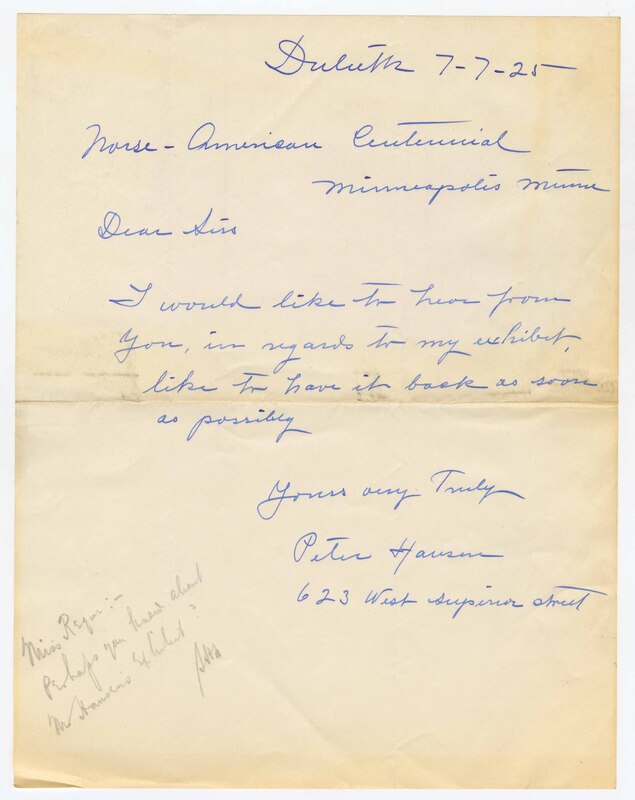 Duluth 7-7-25
Norse-American Centennial
Minneapolis Minn
Dear Sirs
I would like to hear from
You, in regards to my exhibit,
like to have it back as soon
as possibly
Yours very Truly
Peter Hansen
623 West Superior Street
Miss Regni:-
Perhaps you know about
Mr Hansen's Exhibit?